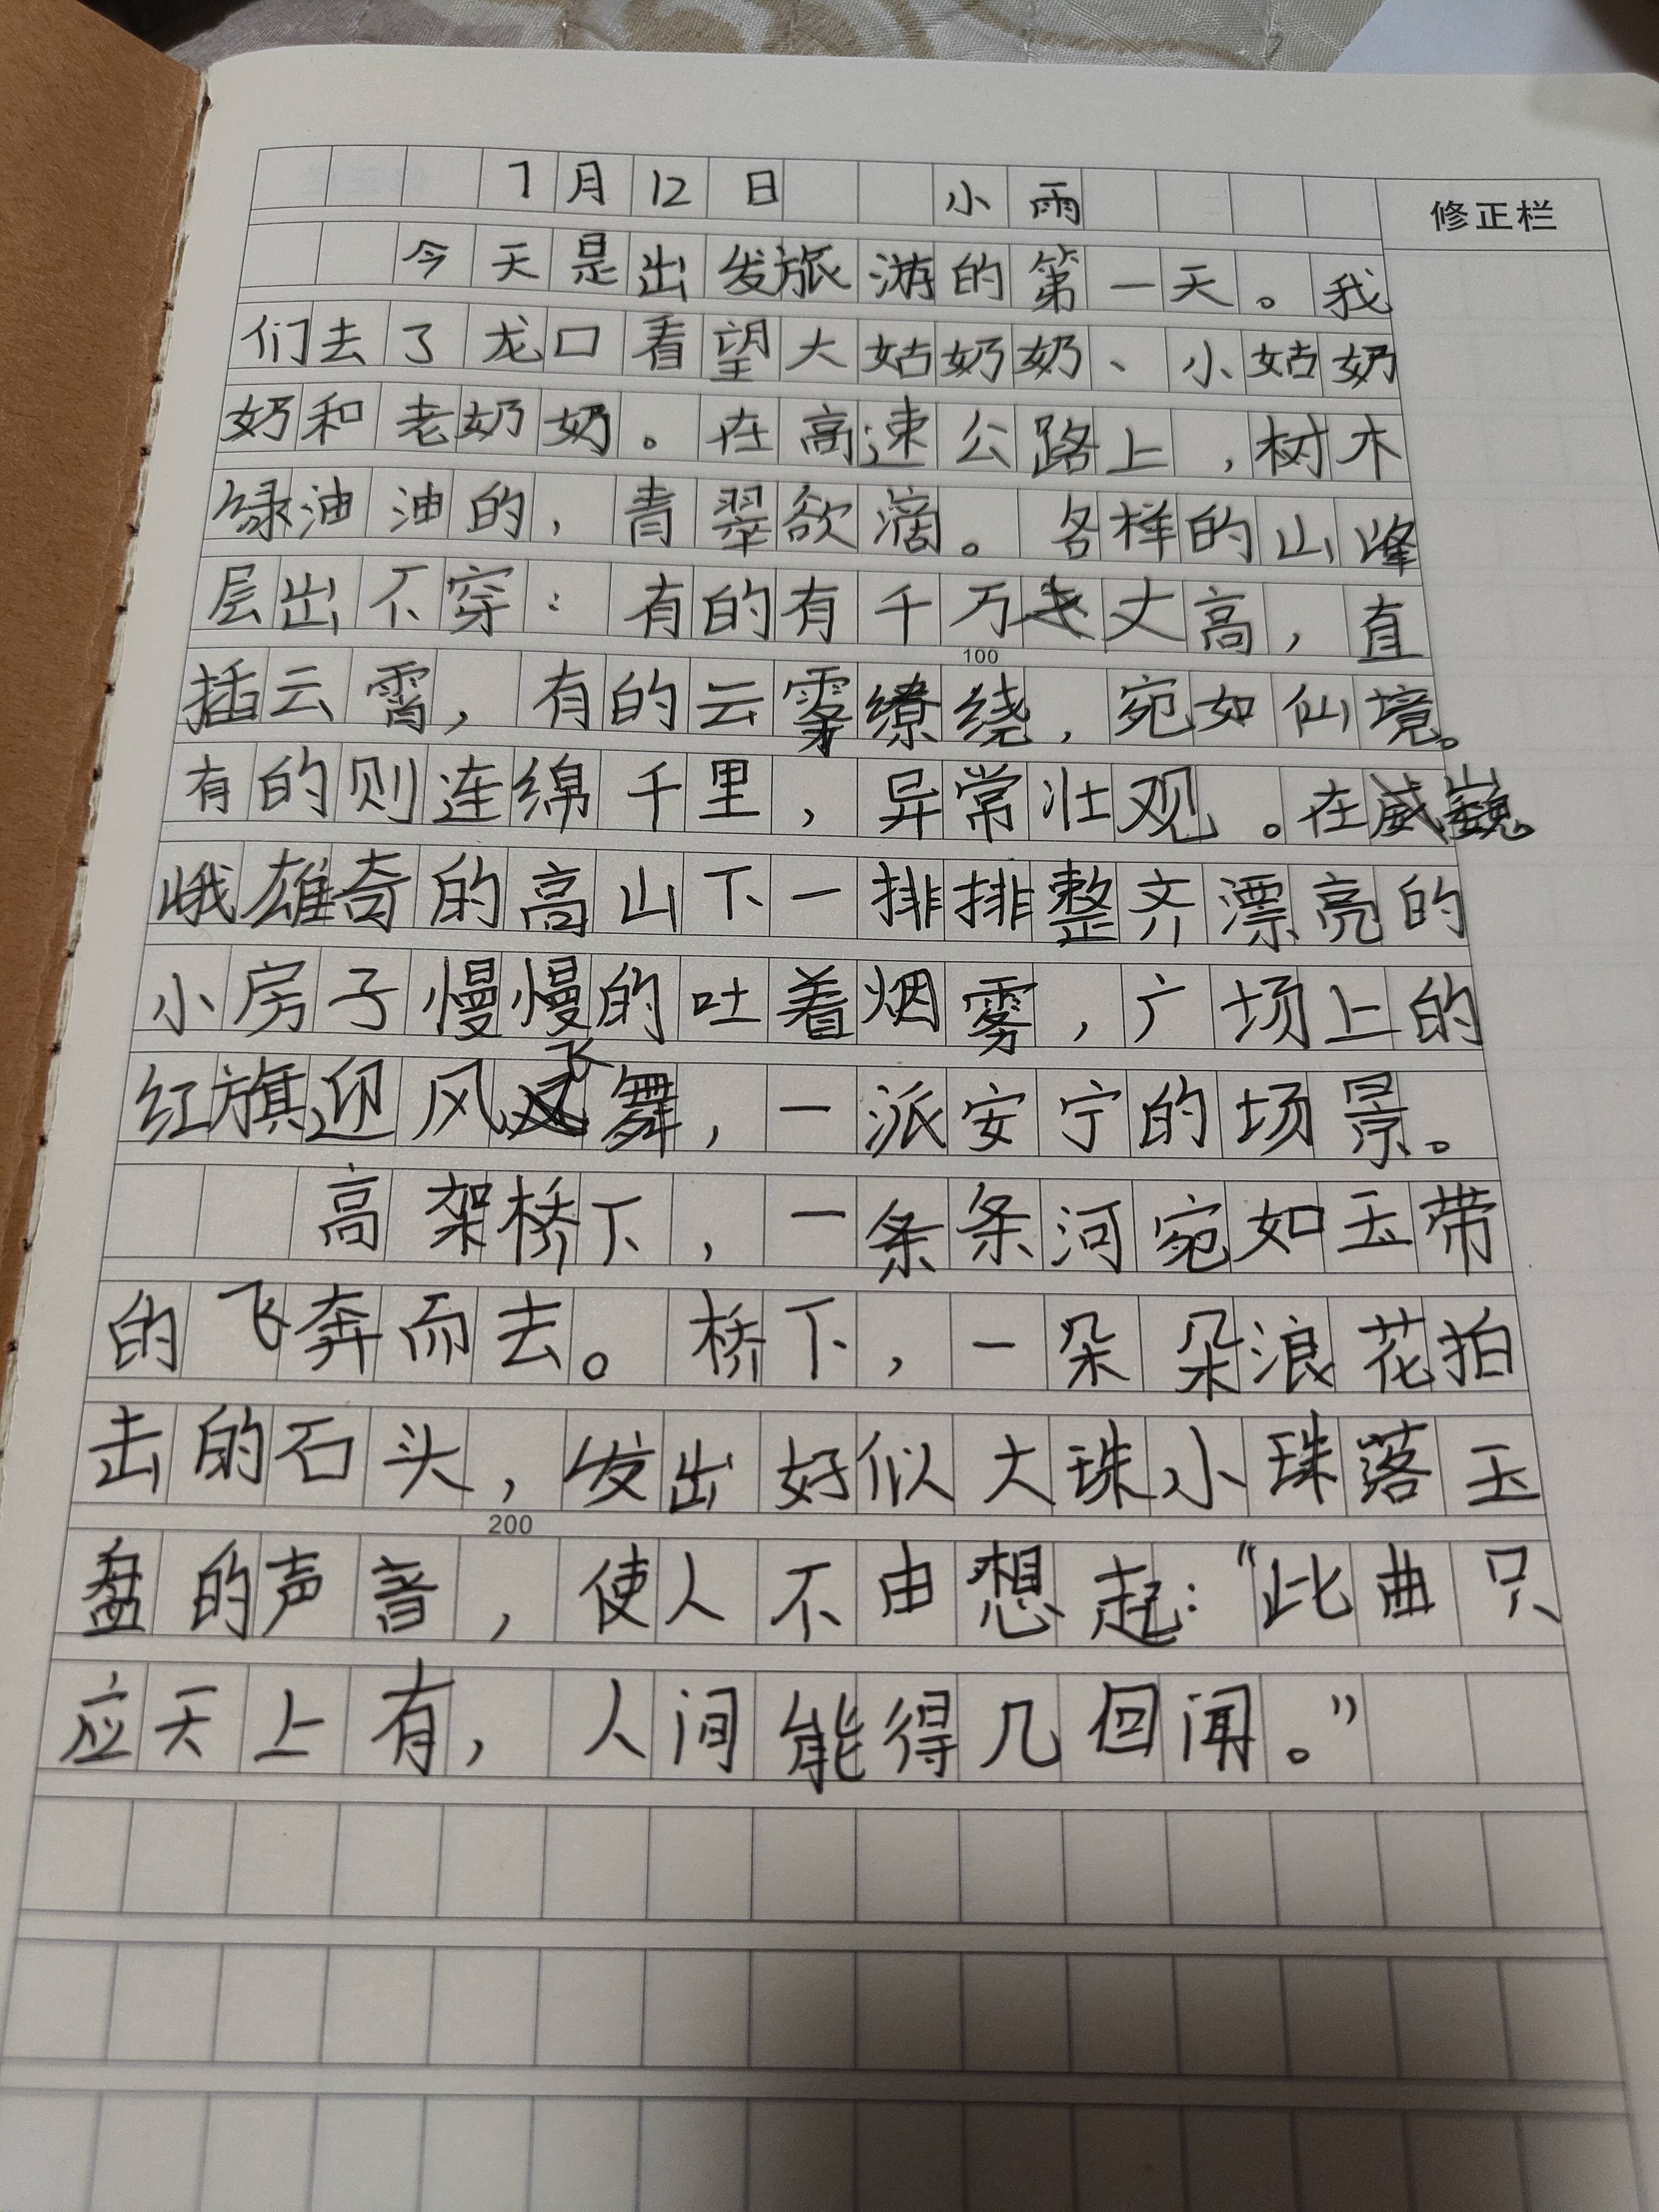 7月12日 小雨
修正栏
今天是出发旅游的第一天。我
们去了龙口看望大姑奶奶、小姑奶
奶和老奶奶。在高速公路上,树木
绿油油的,青翠欲滴。各样的山峰
层出不穿:有的有千万丈高,直
100
插云霄,有的云雾缭绕,宛如仙境。
有的则连绵千里,异常壮观。在巍
峨雄奇的高山下一排排整齐漂亮的
小房子慢慢的吐着烟雾,广场上的
红旗迎风飞舞,一派安宁的场景。
高架桥下,一条条河宛如玉带
的飞奔而去。桥下,一朵朵浪花拍
击的石头,发出好似大珠小珠落玉
200
盘的声音,使人不由想起:“此曲只
应天上有,人间能得几回闻。”